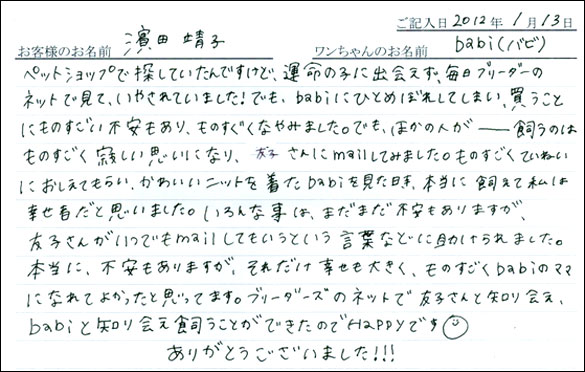 ご記入日 2012年 1月13日
お客様のお名前 濱田 靖子 ワンちゃんのお名前 babi(バビ)
ペットショップで探していたんですけど、運命の子に出会えず、毎日ブリーダーの
ネットで見て、いやされていました!でも、babiにひとめぼれしてしまい、買うこと
にものすごい不安もあり、ものすごくなやみました。でも、ほかの人が――飼うのは
ものすごく寂しい思いになり、友子さんにmailしてみました。ものすごくていねい
におしえてもらい、かわいいニットを着たbabiを見た日は、本当に飼えて私は
幸せ者だと思いました。いろんな事は、まだまだ不安もありますが、
友子さんがいつでもmailしてもいうという言葉などに助けられました。
本当に、不安もありますが、それだけ幸せも大きく、ものすごくbabiのママ
になれてよかったと思ってます。ブリーダーズのネットで友子さんと知り会え、
babiと知り会え飼うことができたのでHAPPYです
ありがとうございました!!!